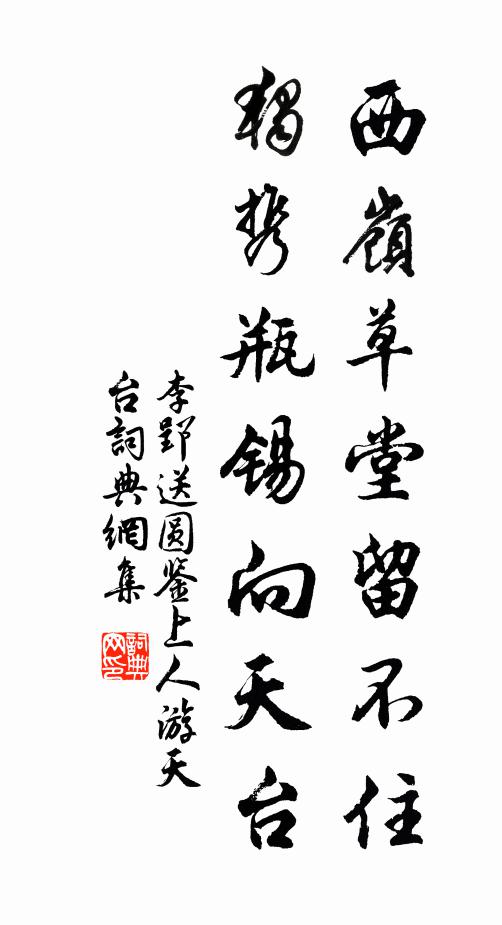 西嶺草堂留不住
獨携瓶錫向天台
李郢送圆鉴上人游天
台詞典網集
詞典
网印